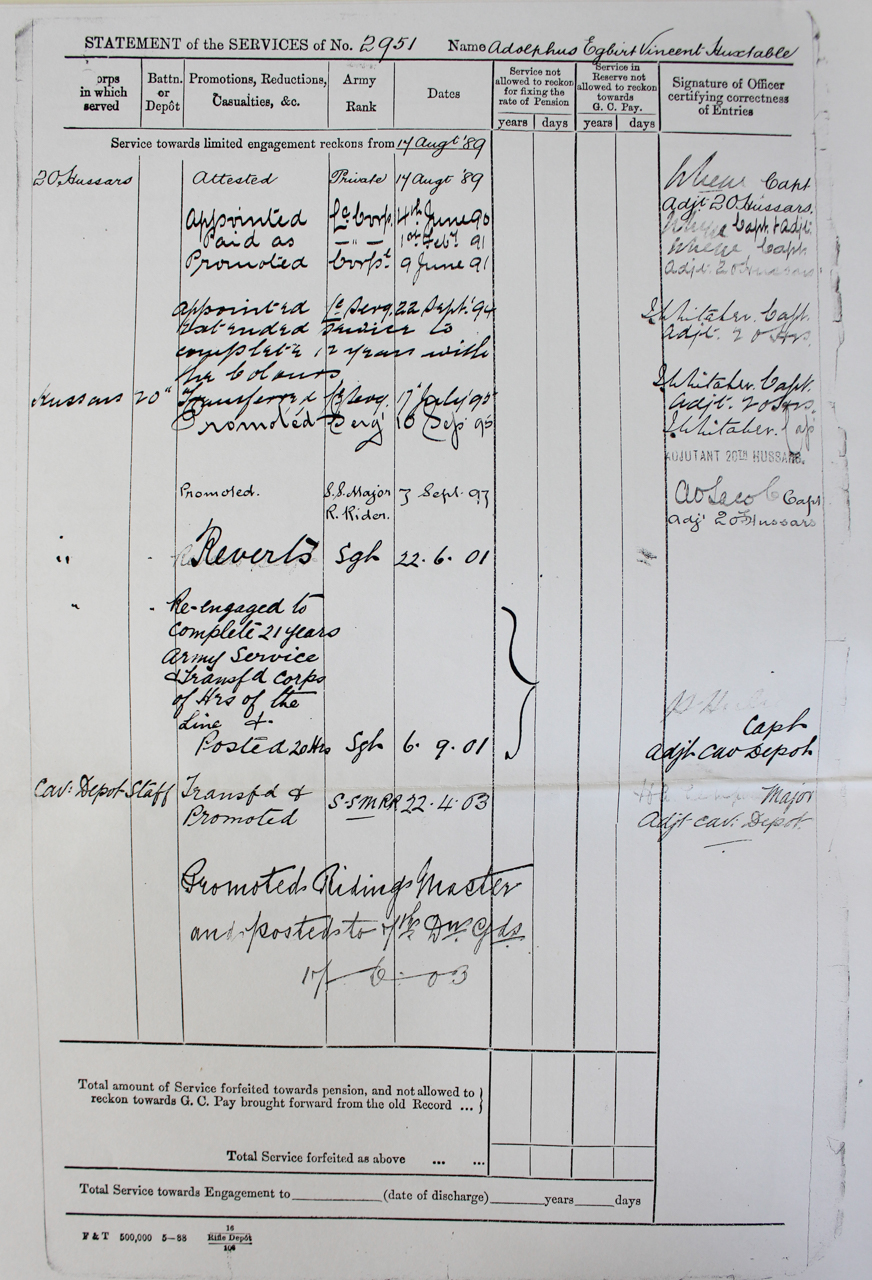 STATEMENT of the SERVICES of No. 2951 Name Adolphus Egbert Vincent Huxtable
orps in which served
Battn. or Depôt
Promotions, Reductions, Casualties, &c.
Army Rank
Dates
Service not allowed to reckon for fixing the rate of Pension
Service in Reserve not allowed to reckon towards G. C. Pay.
Signature of Officer certifying correctness of Entries
years days years days
Service towards limited engagement reckons from 17 Augt '89
20 Hussars Attested Private 17 Augt '89 Capt
Adjt 20 Hussars.
Appointed Lce Corp. 4th June 90 Capt. & Adjt.
Paid as —"— 1st Feby. 91 Capt
Promoted Corpl. 9 June 91 Adjt. 20 Hussars
Appointed Lce Sergt. 22 Sept. 94 Whitaker. Capt.
Extended Service to Adjt. 20 Hrs.
complete 12 years with
the Colours
Whitaker. Capt.
Hussars 20" Transferred Lce Sergt. 17 July 95 Adjt. 20 Hrs.
Promoted Sergt 16 Sep 95 Whitaker. Cap
ADJUTANT 20TH HUSSARS.
Promoted. S.S. Major 3 Sept. 97 Capt
R. Rider. Adjt 20 Hussars
" Reverts Sgt 22. 6. 01
" Re-engaged to
complete 21 years
Army Service
& Transfd corps
of Hrs of the
Line &
Capt
Posted 20 Hrs Sgt 6. 9. 01 Adjt Cav Depot
Cav: Depot Staff Transfd & S-S M RR 22. 4. 03 Major
Promoted Adjt Cav: Depot.
Promoted Riding Master
and posted to 7th Dn. Gds
17 — 6 — 03
Total amount of Service forfeited towards pension, and not allowed to
reckon towards G. C. Pay brought forward from the old Record ...
Total Service forfeited as above ... ...
Total Service towards Engagement to (date of discharge) years days
F & T 500,000 5—88
16
Rifle Depôt